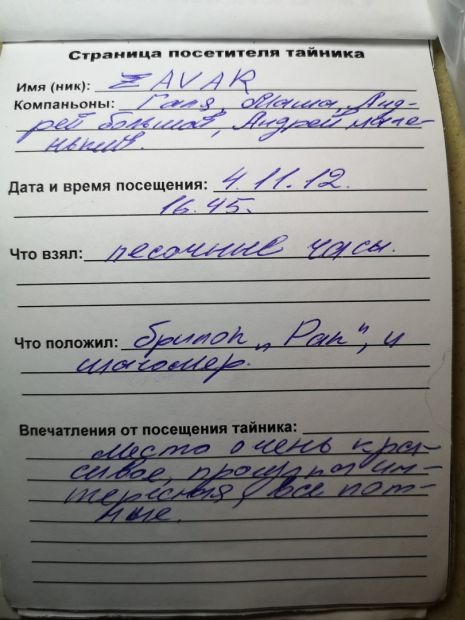 Страница посетителя тайника
Имя (ник): ZAVAR
Компаньоны: Галя, Маша, Анд-
рей большой, Андрей мале-
нький.
Дата и время посещения: 4.11.12.
16.45.
Что взял: песочные часы.
Что положил: брилок „Рак", и
шагомер.
Впечатления от посещения тайника:
Место очень кра-
сивое, прогулка ин-
тересная, все пот-
ные.